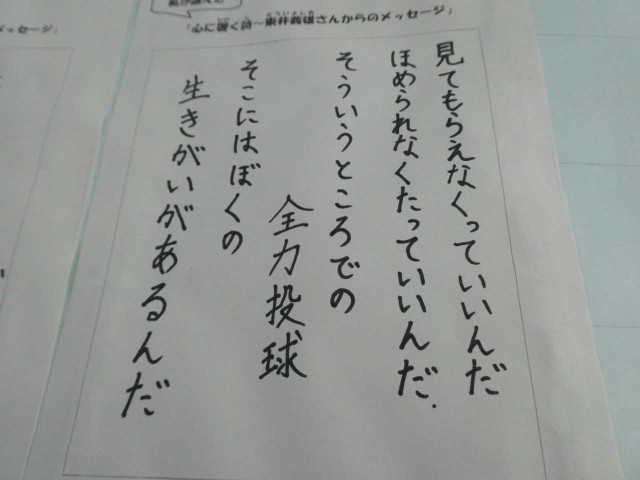 「心に響く詩～東井義雄さんからのメッセージ」
見てもらえなくっていいんだ
ほめられなくたっていいんだ.
そういうところでの
全力投球
そこにはぼくの
生きがいがあるんだ
メッセージ」